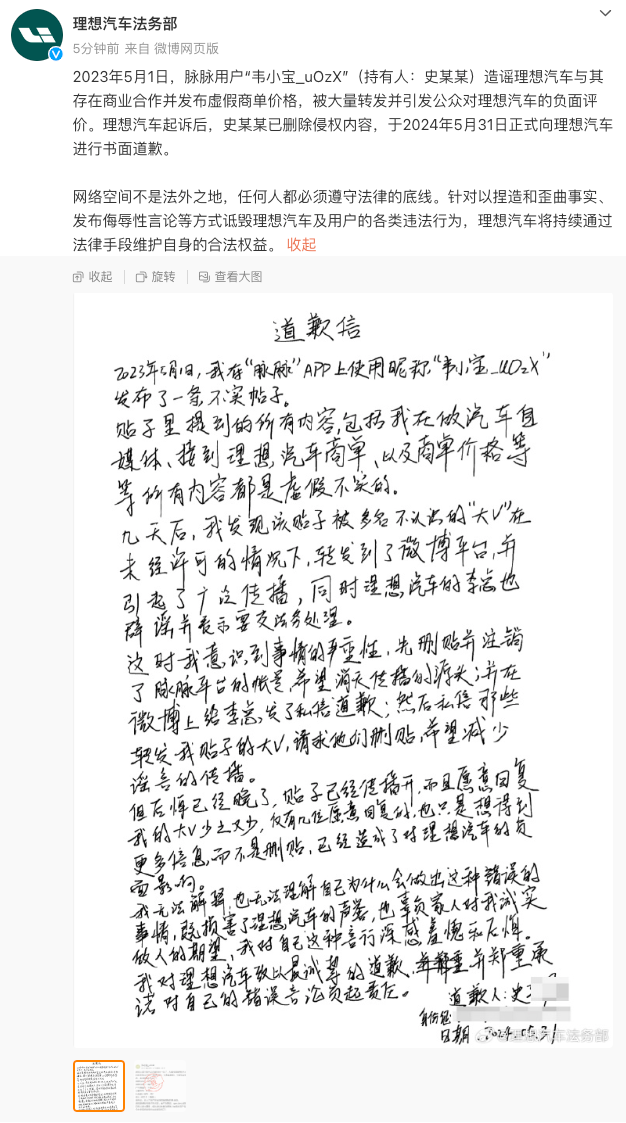 理想汽车法务部
5分钟前 来自 微博网页版
2023年5月1日，脉脉用户“韦小宝_uOzX”（持有人：史某某）造谣理想汽车与其
存在商业合作并发布虚假商单价格，被大量转发并引发公众对理想汽车的负面评
价。理想汽车起诉后，史某某已删除侵权内容，于2024年5月31日正式向理想汽车
进行书面道歉。
网络空间不是法外之地，任何人都必须遵守法律的底线。针对以捏造和歪曲事实、
发布侮辱性言论等方式诋毁理想汽车及用户的各类违法行为，理想汽车将持续通过
法律手段维护自身的合法权益。 收起
收起 旋转 查看大图
道歉信
2023年5月1日，我在“脉脉”APP上使用昵称“韦小宝_uOzX”
发布了一条不实帖子。
贴子里提到的所有内容，包括我在做汽车自
媒体、接到理想汽车商单、以及商单价格等
等所有内容都是虚假不实的。
九天后，我发现该贴子被多名不认识的“大V”在
未经许可的情况下，转发到了微博平台，并
引起了广泛传播，同时理想汽车的李总也
辟谣并表示要交法务处理。
这时我意识到事情的严重性，先删贴并注销
了脉脉平台的帐号，希望消灭传播的源头；并在
微博上给李总发了私信道歉；然后私信那些
转发我贴子的大V，请求他们删贴，希望减少
谣言的传播。
但后悔已经晚了，贴子已经传播开，而且愿意回复
我的大V少之又少，仅有几位愿意回复的，也只是想得到
更多信息，而不是删贴，已经造成了对理想汽车的负
面影响。
我无法解释，也无法理解自己为什么会做出这种错误的
事情，既损害了理想汽车的声誉，也辜负家人对我诚实
做人的期望，我对自己这种言行深感羞愧和后悔。
我对理想汽车致以最诚挚的道歉，并郑重承
诺对自己的错误言论负起责任。
道歉人：史
身份证
日期：2024.05.31
@理想汽车法务部